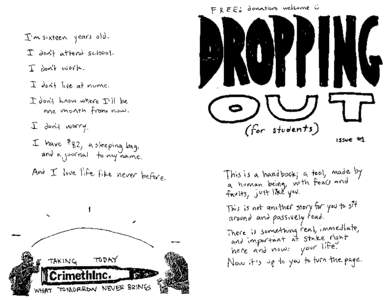 I'm sixteen years old.
I don't attend school.
I don't work.
I don't live at home.
I don't know where I'll be
one month from now.
I don't worry.
I have $82, a sleeping bag,
and a journal to my name.
And I love life like never before.
TAKING TODAY
CrimethInc.
WHAT TOMORROW NEVER BRINGS
FREE! donations welcome :)
DROPPING
OUT
(for students)
issue #1
This is a handbook; a tool, made by
a human being, with fears and
faults, just like you.
This is not another story for you to sit
around and passively read.
There is something real, immediate,
and important at stake right
here and now: your life.
Now it's up to you to turn the page.